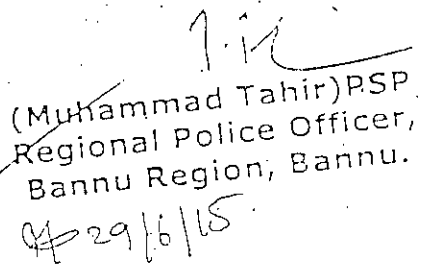 (Muhammad Tahir)PSP
Regional Police Officer,
Bannu Region, Bannu.
29/6/15